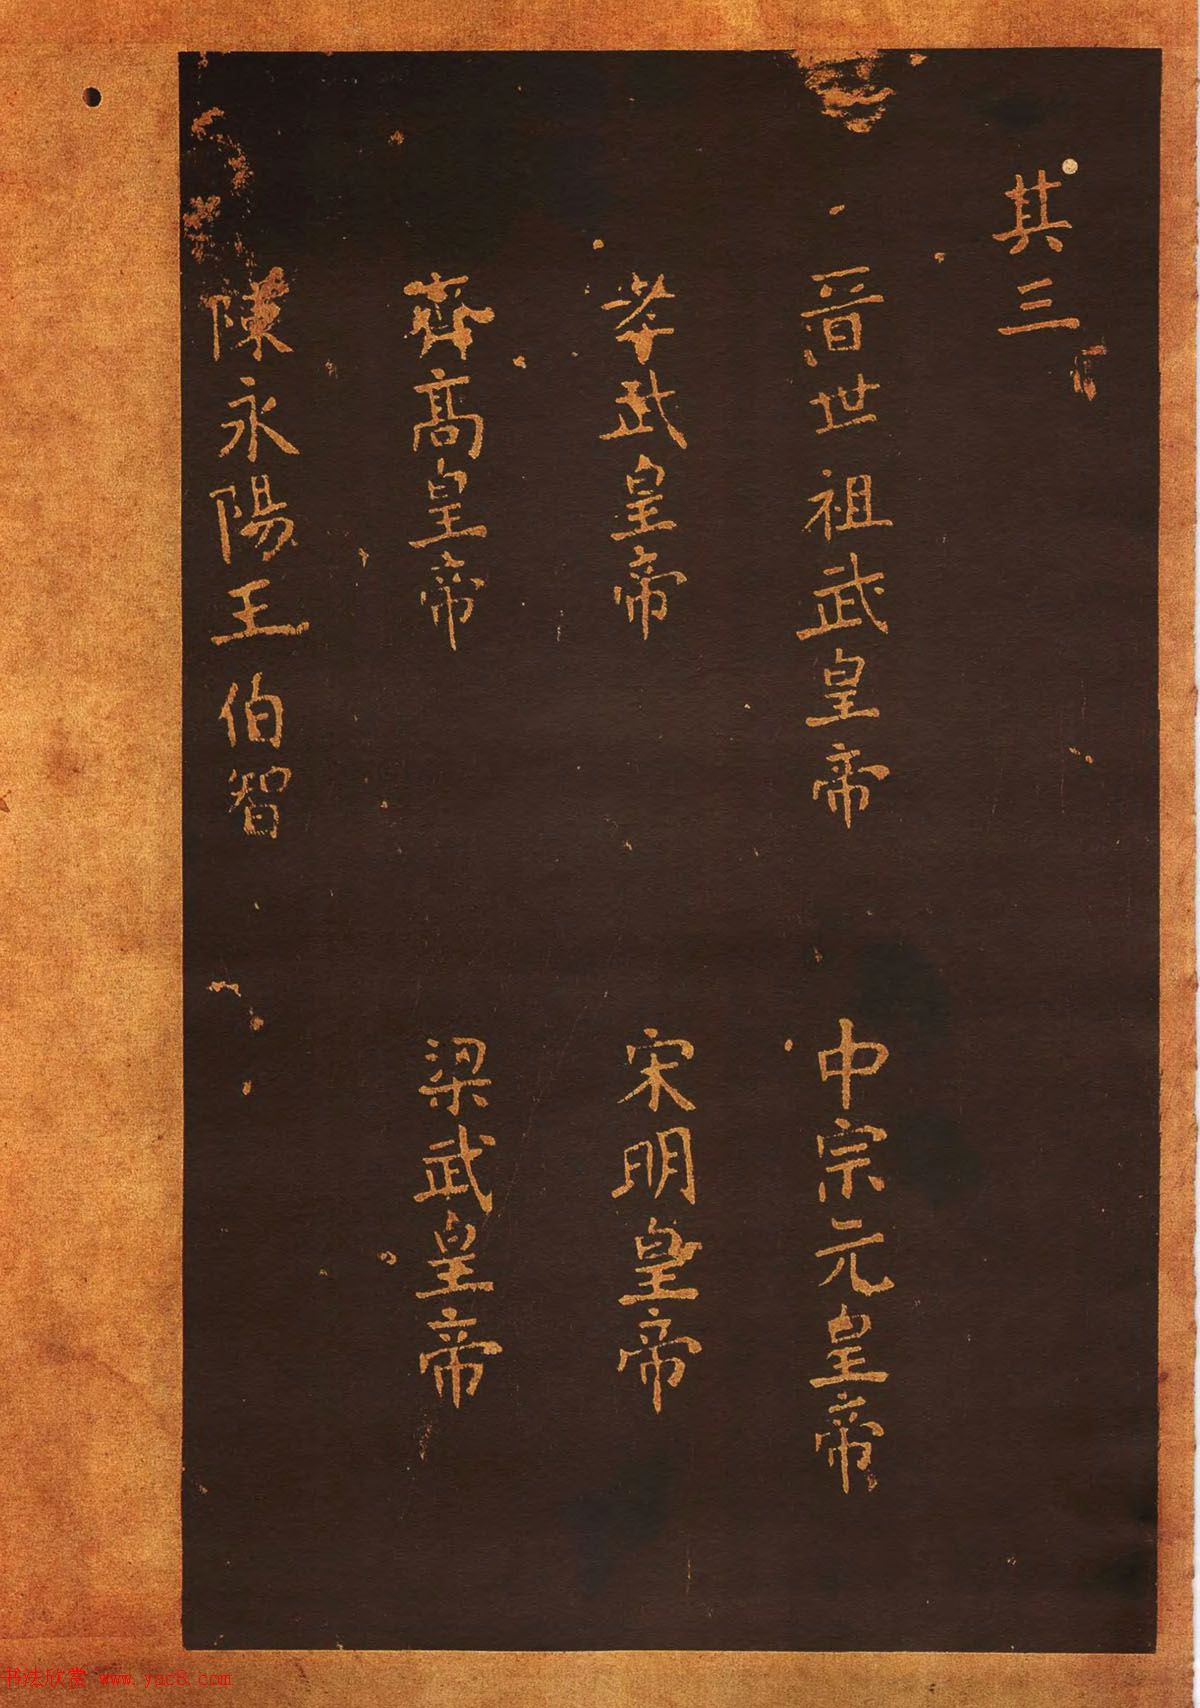 其三
晉世祖武皇帝 中宗元皇帝
孝武皇帝 宋明皇帝
齊高皇帝 梁武皇帝
陳永陽王伯智
书法欣赏 www.yac8.com